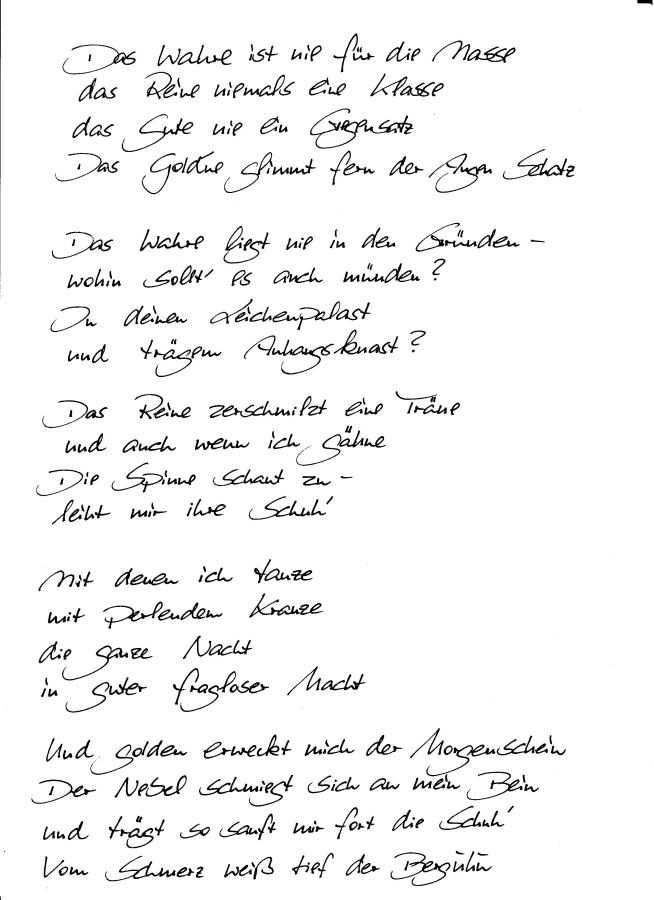 Das Wahre ist nie für die Masse
das Reine niemals eine Klasse
das Gute nie ein Gegensatz
Das Goldne glimmt fern der Augen Schatz
Das Wahre liegt nie in den Gründen –
wohin sollt' es auch münden?
In deinen Leichenpalast
und trägem Anhangsknast?
Das Reine zerschmilzt eine Träne
und auch wenn ich gähne
Die Spinne schaut zu –
leiht mir ihre Schuh'
Mit denen ich tanze
mit perlendem Kranze
die ganze Nacht
in guter fragloser Macht
Und golden erweckt mich der Morgenschein
Der Nebel schmiegt sich an mein Bein
und trägt so sanft mir fort die Schuh'
Vom Schmerz weiß tief der